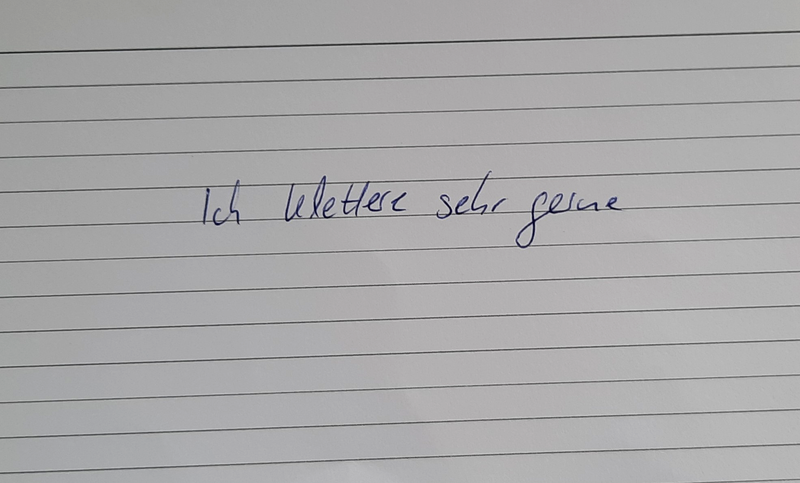 Ich klettere sehr gerne